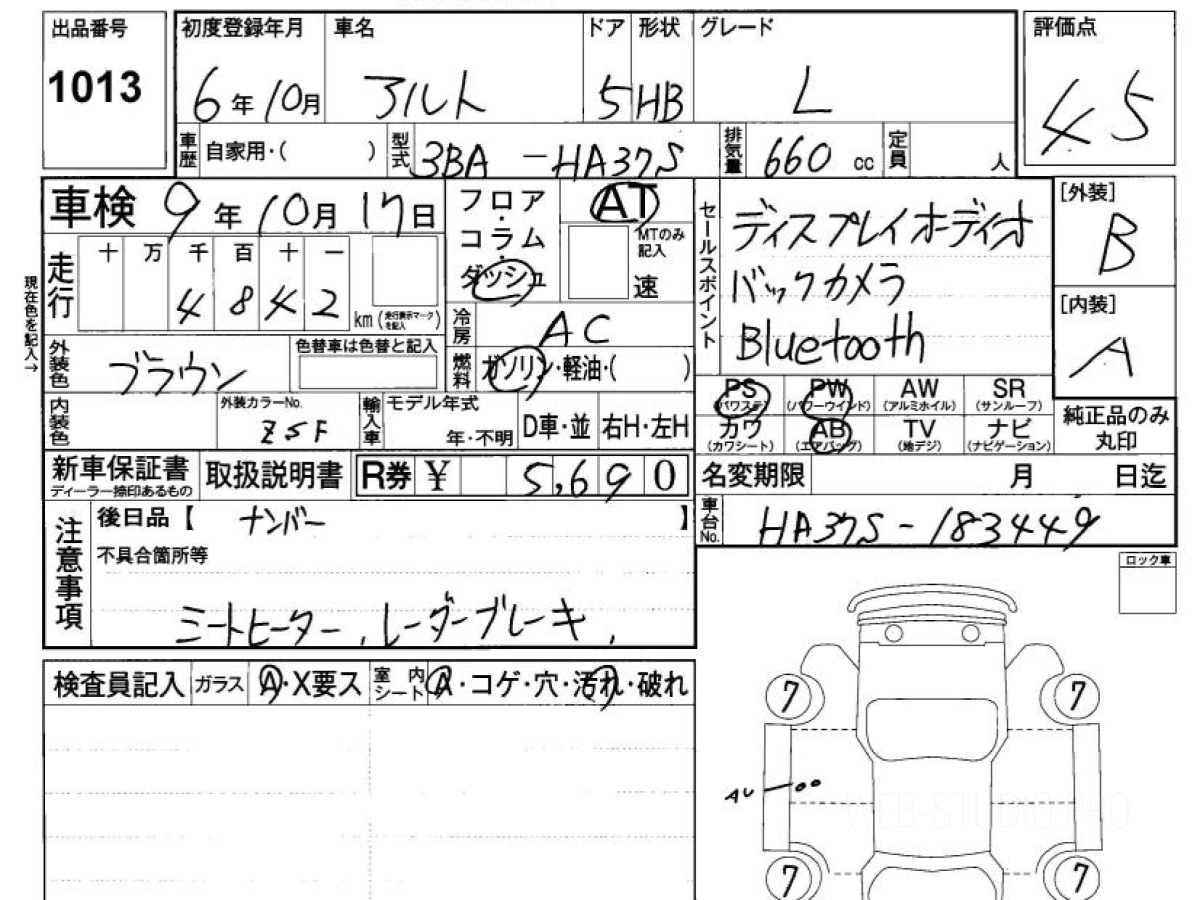 出品番号
1013
初度登録年月
6年10月
車名
アルト
ドア
5
形状
HB
グレード
L
評価点
4 5
車歴
自家用・( )
型式
3BA -HA37S
排気量
660 cc
定員
人
車検 9年10月17日
フロア
・
コラム
・
ダッシュ
AT
MTのみ
記入
速
セールスポイント
ディスプレイオーディオ
バックカメラ
Bluetooth
[外装]
B
[内装]
A
現在色を記入→
走行
十 万 千 百 十 一
4 8 4 2
km(走行表示マークを記入)
冷房
AC
燃料
ガソリン・軽油・( )
外装色
ブラウン
色替車は色替と記入
内装色
外装カラーNo.
Z5F
輸入車
モデル年式
年・不明
D車・並
右H・左H
PS
(パワステ)
PW
(パワーウインド)
AW
(アルミホイル)
SR
(サンルーフ)
カワ
(カワシート)
AB
(エアバッグ)
TV
(地デジ)
ナビ
(ナビゲーション)
純正品のみ
丸印
新車保証書
ディーラー捺印あるもの
取扱説明書
R券 ¥ 5,690
名変期限 月 日迄
車台No.
HA37S-183449
注意事項
後日品【 ナンバー 】
不具合箇所等
シートヒーター、レーダーブレーキ、
ロック車
検査員記入
ガラス
A・X要ス
室内
シート
A・コゲ・穴・汚れ・破れ
7 7
AU
7 7
WEB-STUDIO.PRO